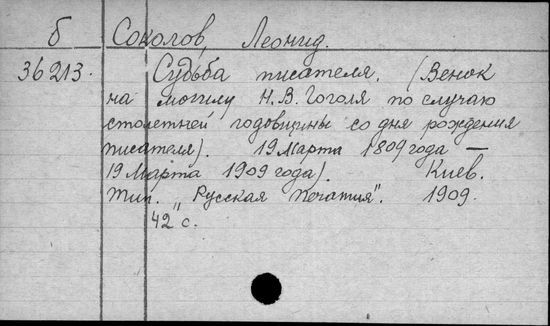 Б Соколов, Леонид.
36213. Судьба писателя. (Венок
на могилу Н.В. Гоголя по случаю
столетней годовщины со дня рождения
писателя). 19 Марта 1809 года —
19 Марта 1909 года). Киев.
Тип. "Русская печатня". 1909.
42 с.